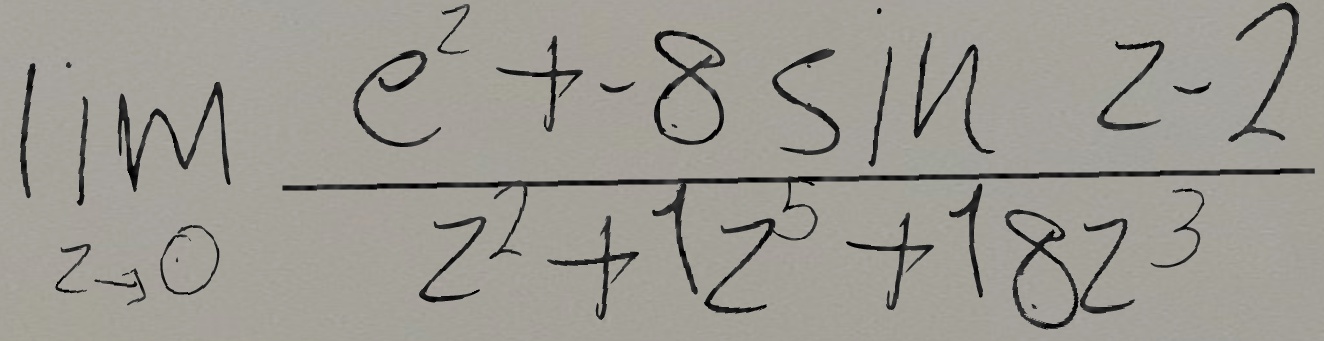 \lim_{z \to 0} \frac{e^{z} + -8 \sin z - 2}{z^{2} + 1z^{5} + 18z^{3}}